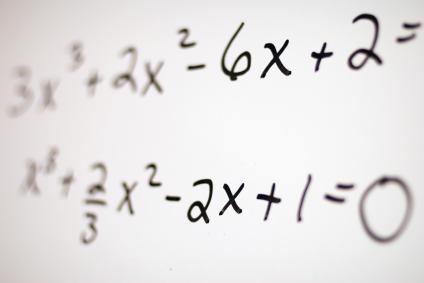 3x³ + 2x² - 6x + 2 =
x³ + 2/3 x² - 2x + 1 = 0